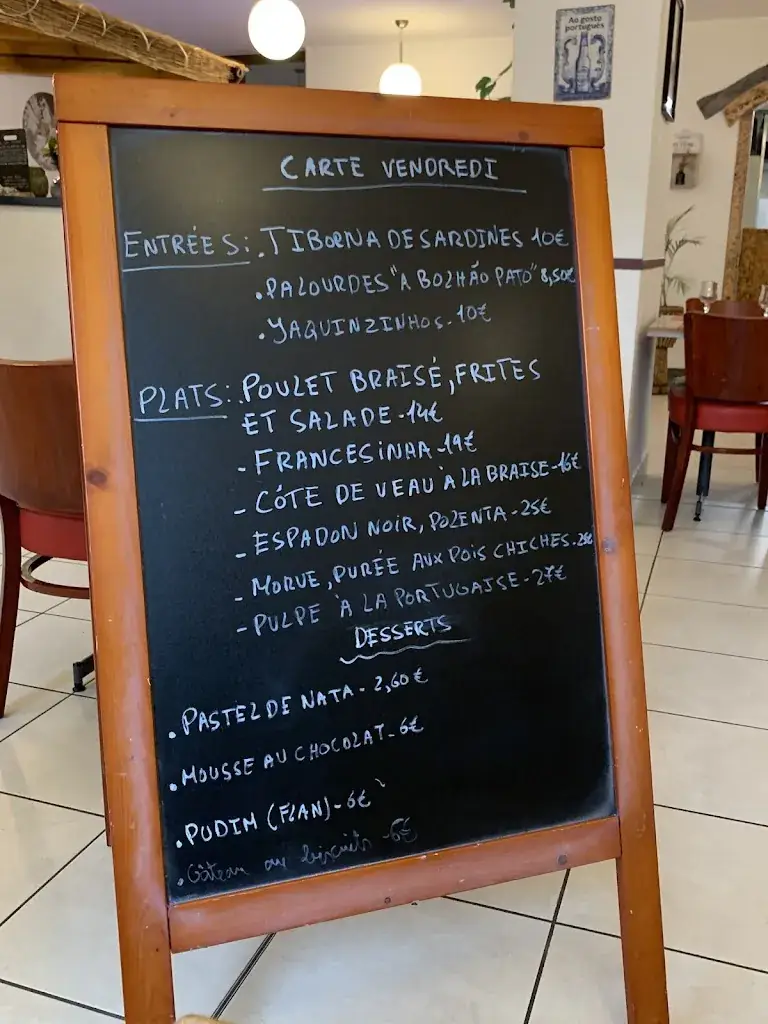 Ao gosto
português
CARTE VENDREDI
ENTRÉES: . TIBORNA DE SARDINES 10€
. PALOURDES "A BOLHÃO PATO" 8,50€
. JAQUINZINHOS. 10€
PLATS: . POULET BRAISÉ, FRITES
ET SALADE - 14€
- FRANCESINHA - 19€
- CÔTE DE VEAU À LA BRAISE - 16€
- ESPADON NOIR, POLENTA - 25€
- MORUE, PURÉE AUX POIS CHICHES. 26€
- PULPE À LA PORTUGAISE - 27€
DESSERTS
. PASTEL DE NATA - 2,60€
. MOUSSE AU CHOCOLAT - 6€
. PUDIM (FLAN) - 6€
. Gâteau au biscuits - 6€